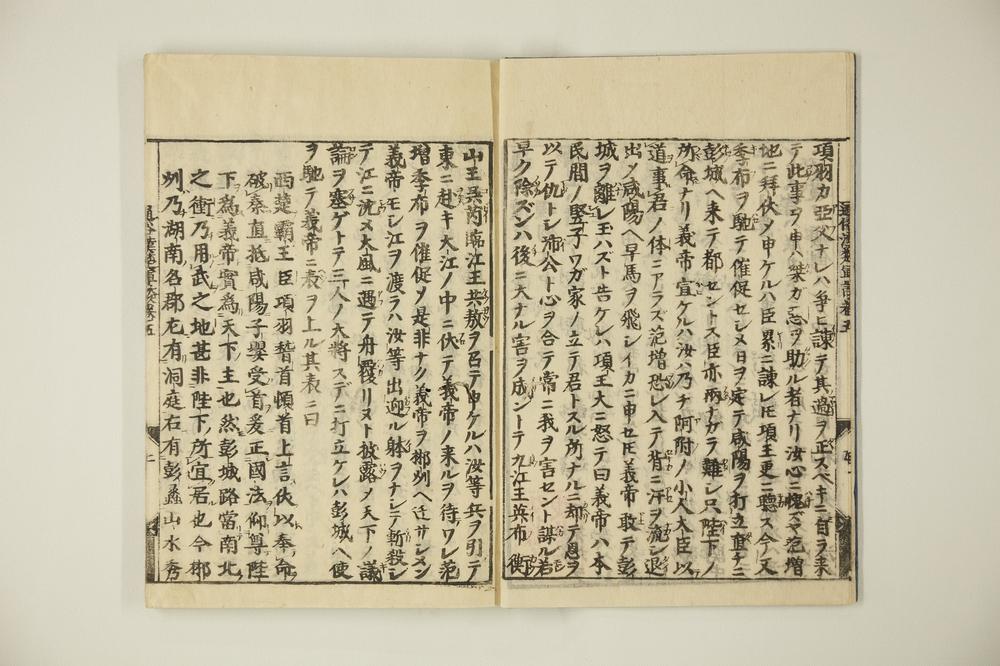 項羽カ亞父ナレハ爭ヒ諫テ其過ヲ正スベキニ首ヲ來
テ此事ヲ申ヘ桀カ惡ヲ助ル者ナリ汝心ニ愧ズヤ范増
地ニ拜伏メ申ケルハ臣累ニ諫レ𪜈項王更ニ聽ス今又
季布ヲ馳テ催促セシメ日ヲ定テ咸陽ヲ打立直チニ
彭城ヘ来テ都セントス臣亦兩ナガラ離シ只陛下ノ
所命ナリ義帝宣ケルハ汝ハ乃チ阿附ノ小人大臣以
道事君ノ体ニアラズ范増恐レ入テ背ニ汗ヲ流シ退
出メ咸陽ヘ早馬ヲ飛シイカニ申セ𪜈義帝敢テ彭
城ヲ離レ玉ハズト告ケレハ項王大ニ怒テ曰義帝ハ本
民間ノ竪子ワガ家ノ立テ君トスル所ナルニ却テ恩ヲ
以テ仇トシ沛公ト心ヲ合テ常ニ我ヲ害セント謀ル若
早ク除ズンハ後ニ大ナル害ヲ成ントテ九江王英布衡
山王呉芮臨江王共敖ヲ召テ申ケルハ汝等兵ヲ引テ
東ニ赴キ大江ノ中ニ伏テ義帝ノ来ルヲ待ワレ范
増季布ヲ催促メ是非ナク義帝ヲ郴州ヘ迁サシメン
義帝モシ江ヲ渡ラハ汝等出迎ル躰ヲナシテ斬殺シ
テ江ニ沈メ大風ニ遇テ舟覆リヌト披露メ天下ノ議
論ヲ塞ゲトテ三人ノ大將スデニ打立ケレハ彭城ヘ使
ヲ馳テ義帝ニ表ヲ上ル其表ニ曰
西楚霸王臣項羽稽首頓首上言伏以奉命
破秦直抵咸陽子嬰受首爰正國法仰尊陛
下爲義帝實爲天下主也然彭城路當南北
之衝乃用武之地甚非陛下所宜居也今郴
州乃湖南名郡左有洞庭右有彭蠡山水秀